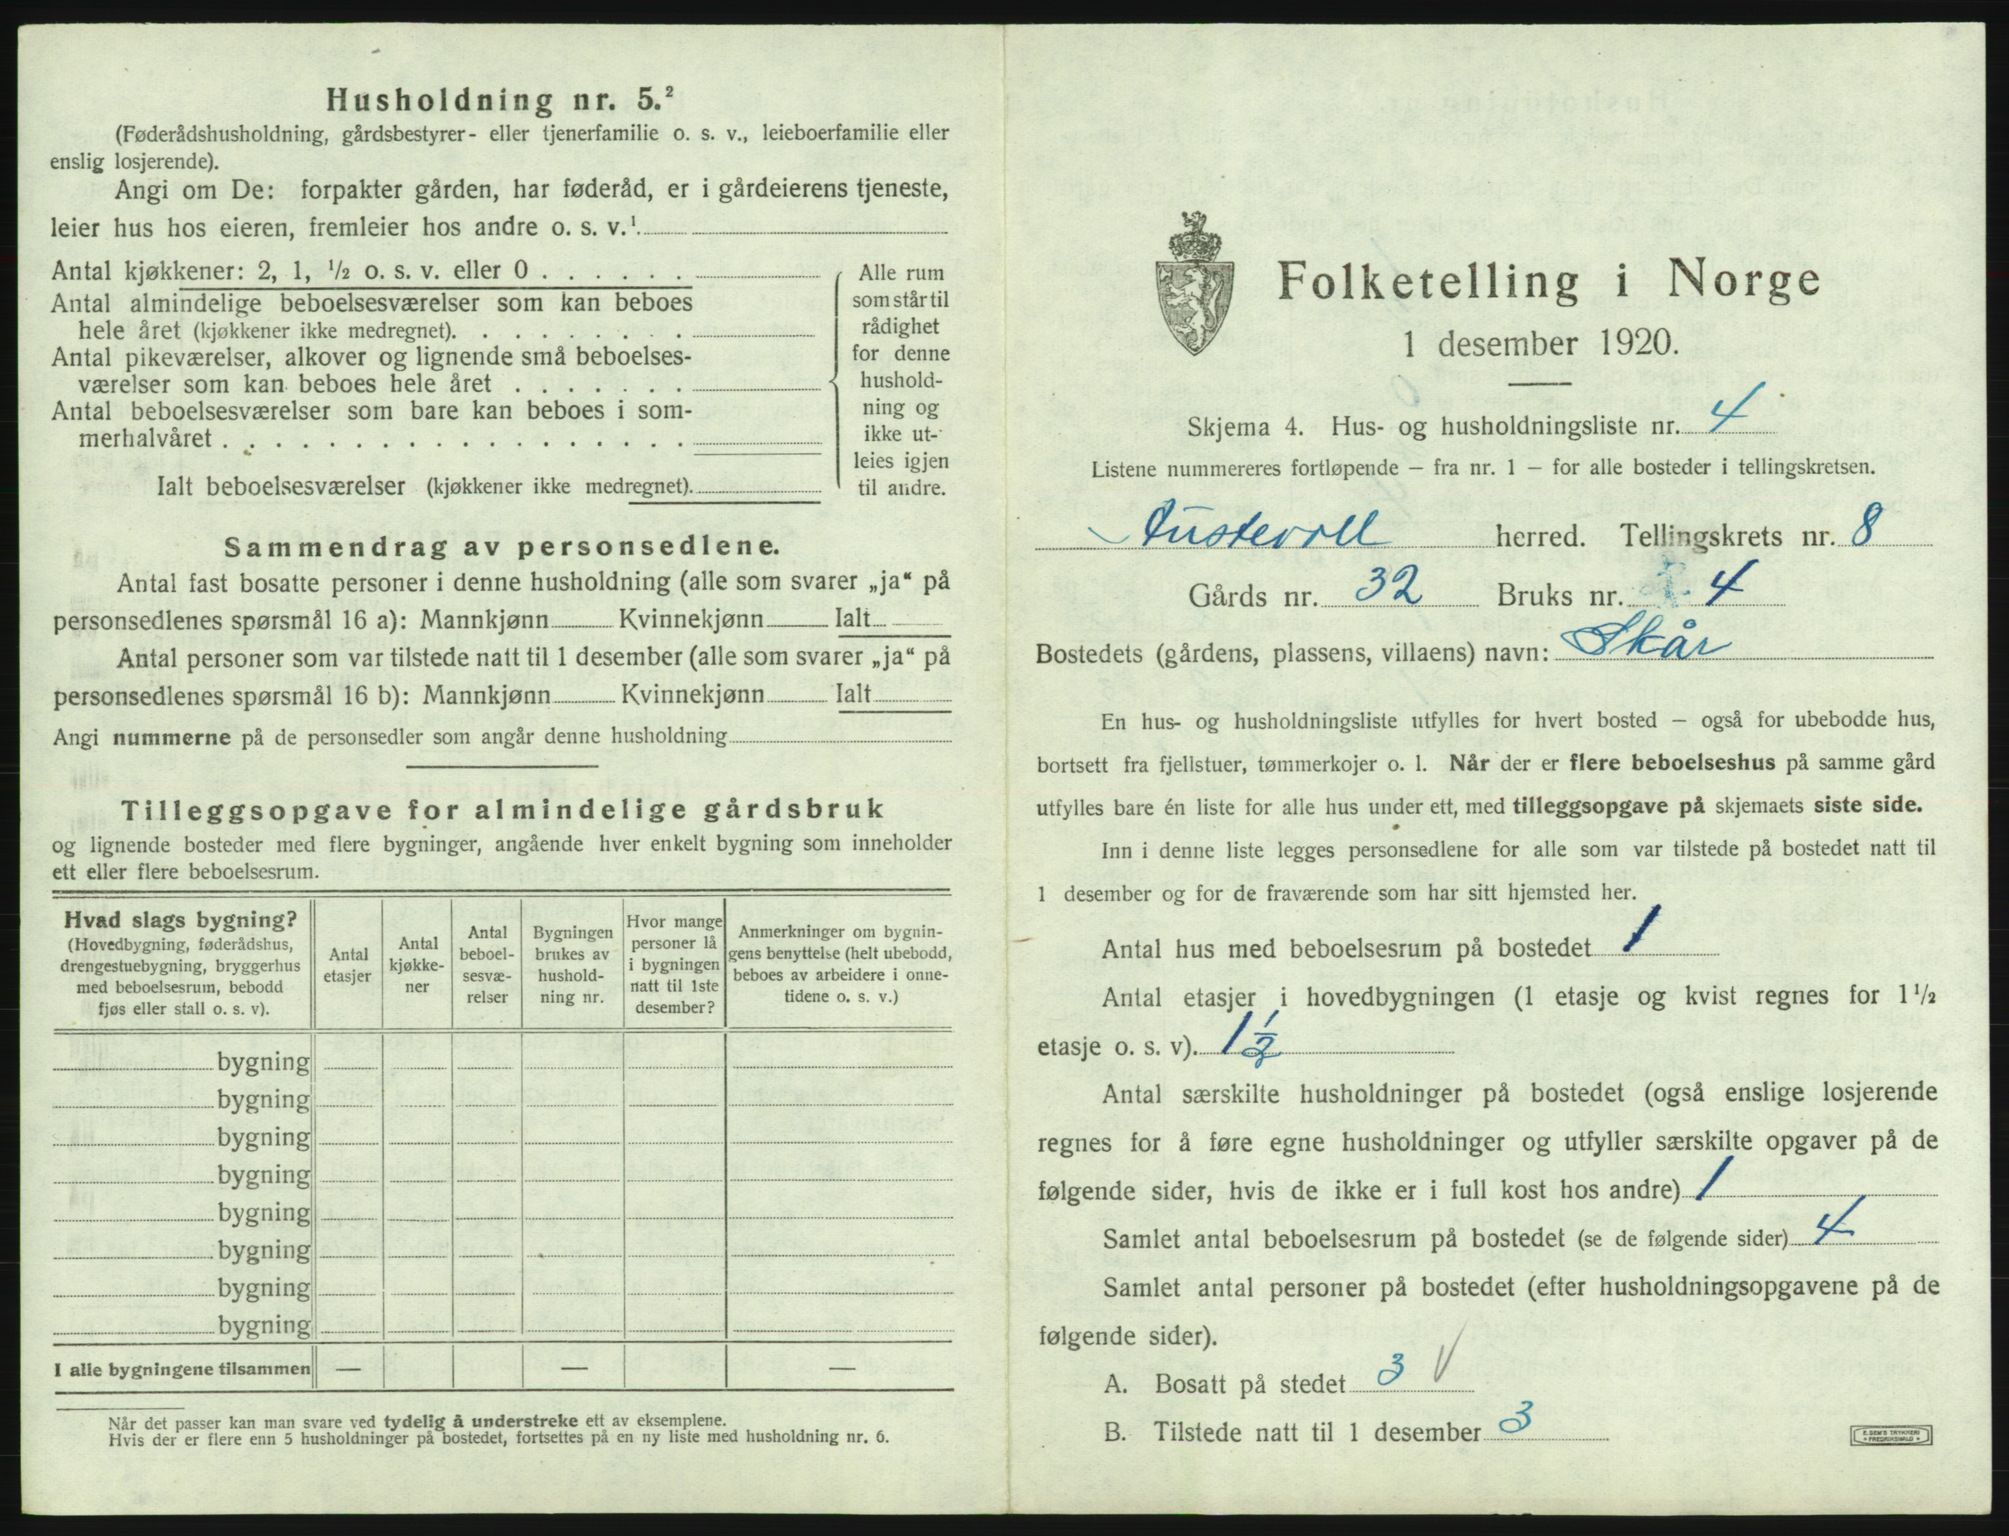 Husholdning nr. 5.²
(Føderådshusholdning, gårdsbestyrer- eller tjenerfamilie o. s. v., leieboerfamilie eller
enslig losjerende).
Angi om De: forpakter gården, har føderåd, er i gårdeierens tjeneste,
leier hus hos eieren, fremleier hos andre o. s. v.¹
Antal kjøkkener: 2, 1, ½ o. s. v. eller 0 . . . . . .
Antal almindelige beboelsesværelser som kan beboes
hele året (kjøkkener ikke medregnet). . . . . . . . .
Antal pikeværelser, alkover og lignende små beboelses-
værelser som kan beboes hele året . . . . . . .
Antal beboelsesværelser som bare kan beboes i som-
merhalvåret . . . . . . . . . . . . . . . . . .
Ialt beboelsesværelser (kjøkkener ikke medregnet).
Alle rum
som står til
rådighet
for denne
hushold-
ning og
ikke ut-
leies igjen
til andre.
Sammendrag av personsedlene.
Antal fast bosatte personer i denne husholdning (alle som svarer „ja“ på
personsedlenes spørsmål 16 a): Mannkjønn Kvinnekjønn Ialt
Antal personer som var tilstede natt til 1 desember (alle som svarer „ja“ på
personsedlenes spørsmål 16 b): Mannkjønn Kvinnekjønn Ialt
Angi nummerne på de personsedler som angår denne husholdning
Tilleggsopgave for almindelige gårdsbruk
og lignende bosteder med flere bygninger, angående hver enkelt bygning som inneholder
ett eller flere beboelsesrum.
Hvad slags bygning?
(Hovedbygning, føderådshus,
drengestuebygning, bryggerhus
med beboelsesrum, bebodd
fjøs eller stall o. s. v).
Antal
etasjer
Antal
kjøkke-
ner
Antal
beboel-
sesvæ-
relser
Bygningen
brukes av
hushold-
ning nr.
Hvor mange
personer lå
i bygningen
natt til 1ste
desember?
Anmerkninger om bygnin-
gens benyttelse (helt ubebodd,
beboes av arbeidere i onne-
tidene o. s. v.)
bygning
bygning
bygning
bygning
bygning
bygning
bygning
bygning
I alle bygningene tilsammen — — —
Når det passer kan man svare ved tydelig å understreke ett av eksemplene.
Hvis der er flere enn 5 husholdninger på bostedet, fortsettes på en ny liste med husholdning nr. 6.
Folketelling i Norge
1 desember 1920.
Skjema 4. Hus- og husholdningsliste nr. 4
Listene nummereres fortløpende – fra nr. 1 – for alle bosteder i tellingskretsen.
Austevoll herred. Tellingskrets nr. 8
Gårds nr. 32 Bruks nr. 4
Bostedets (gårdens, plassens, villaens) navn: Skår
En hus- og husholdningsliste utfylles for hvert bosted – også for ubebodde hus,
bortsett fra fjellstuer, tømmerkojer o. l. Når der er flere beboelseshus på samme gård
utfylles bare én liste for alle hus under ett, med tilleggsopgave på skjemaets siste side.
Inn i denne liste legges personsedlene for alle som var tilstede på bostedet natt til
1 desember og for de fraværende som har sitt hjemsted her.
Antal hus med beboelsesrum på bostedet 1
Antal etasjer i hovedbygningen (1 etasje og kvist regnes for 1½
etasje o. s. v). 1½
Antal særskilte husholdninger på bostedet (også enslige losjerende
regnes for å føre egne husholdninger og utfyller særskilte opgaver på de
følgende sider, hvis de ikke er i full kost hos andre) 1
Samlet antal beboelsesrum på bostedet (se de følgende sider) 4
Samlet antal personer på bostedet (efter husholdningsopgavene på de
følgende sider).
A. Bosatt på stedet 3 V
B. Tilstede natt til 1 desember 3
E. SEM'S TRYKKERI
FREDRIKSHALD